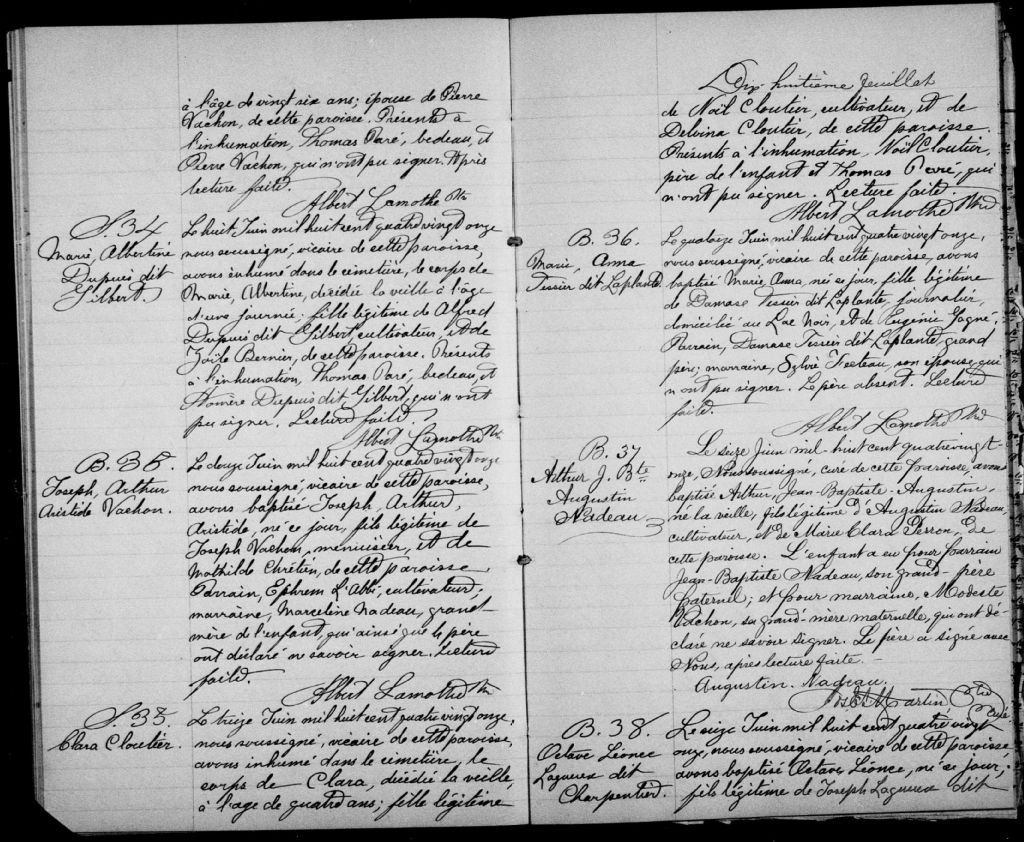 à l'âge de vingt six ans; épouse de Pierre
Vachon, de cette paroisse. Présents à
l'inhumation, Thomas Paré, bedeau, et
Pierre Vachon, qui n'ont pu signer. Après
lecture faite.
Albert Lamothe Ptre
S. 34
Marie, Albertine
Dupuis dit
Gilbert.
Le huit Juin mil huit cent quatre vingt onze
nous soussigné, vicaire de cette paroisse,
avons inhumé dans le cimetière, le corps de
Marie, Albertine, décédée la veille à l'âge
d'une journée: fille légitime de Alfred
Dupuis dit Gilbert, cultivateur, et de
Bernier, de cette paroisse. Présents
à l'inhumation, Thomas Paré, bedeau, et
Homère Dupuis dit Gilbert, qui n'ont
pu signer. Lecture faite.
Albert Lamothe Ptre
B. 35.
Joseph, Arthur
Aristide Vachon.
Le douze Juin mil huit cent quatre vingt onze
nous soussigné, vicaire de cette paroisse,
avons baptisé Joseph, Arthur,
Aristide, né ce jour, fils légitime de
Joseph Vachon, menuisier, et de
Mathilde Chrétien, de cette paroisse
Parrain, Ephrem L'Abbé, cultivateur,
marraine, Marceline Nadeau, grand
mère de l'enfant, qui ainsi que le père
ont déclaré ne savoir signer. Lecture
faite.
Albert Lamothe Ptre
S. 35.
Clara Cloutier.
Le treize Juin mil huit cent quatre vingt onze,
nous soussigné, vicaire de cette paroisse,
avons inhumé dans le cimetière, le
corps de Clara, décédée la veille,
à l'age de quatre ans; fille légitime
Dix huitième feuillet
de Noël Cloutier, cultivateur, et de
Delvina Cloutier, de cette paroisse.
Présents à l'inhumation, Noël Cloutier,
père de l'enfant et Thomas Paré, qui
n'ont pu signer. Lecture faite.
Albert Lamothe Ptre
B. 36.
Marie, Ama
Tessier dit Laplante
Le quatorze Juin mil huit cent quatre vingt onze,
nous soussigné, vicaire de cette paroisse, avons
baptisé Marie, Ama, né ce jour, fille légitime
de Damase Tessier dit Laplante, journalier,
domicilié au Lac Noir, et de Eugénie Gagné.
Parrain, Damase Tessier dit Laplante, grand
père; marraine, Sylvie Fecteau, son épouse, qui
n'ont pu signer. Le père absent. Lecture
faite.
Albert Lamothe Ptre
B. 37
Arthur J. Bte
Augustin
Nadeau
Le seize Juin mil-huit cent quatrevingt-
onze, Nous soussigné, curé de cette paroisse, avons
baptisé Arthur, Jean-Baptiste-Augustin,
né la veille, fils légitime d'Augustin Nadeau,
cultivateur, & de Marie Clara Perron, de
cette paroisse. L'enfant a eu pour parrain
Jean-Baptiste Nadeau, son grand-père
paternel; et pour marraine, Modeste
Vachon, sa grand-mère maternelle, qui ont dé-
claré ne savoir signer. Le père a signé avec
Nous, après lecture faite.
Augustin Nadeau.
Martin Ptre
Curé
B. 38.
Octave Léonce
Lagueux dit
Charpentier.
Le seize Juin mil huit cent quatre vingt
onze, nous soussigné, vicaire de cette paroisse
avons baptisé Octave Léonce, né ce jour,
fils légitime de Joseph Lagueux dit